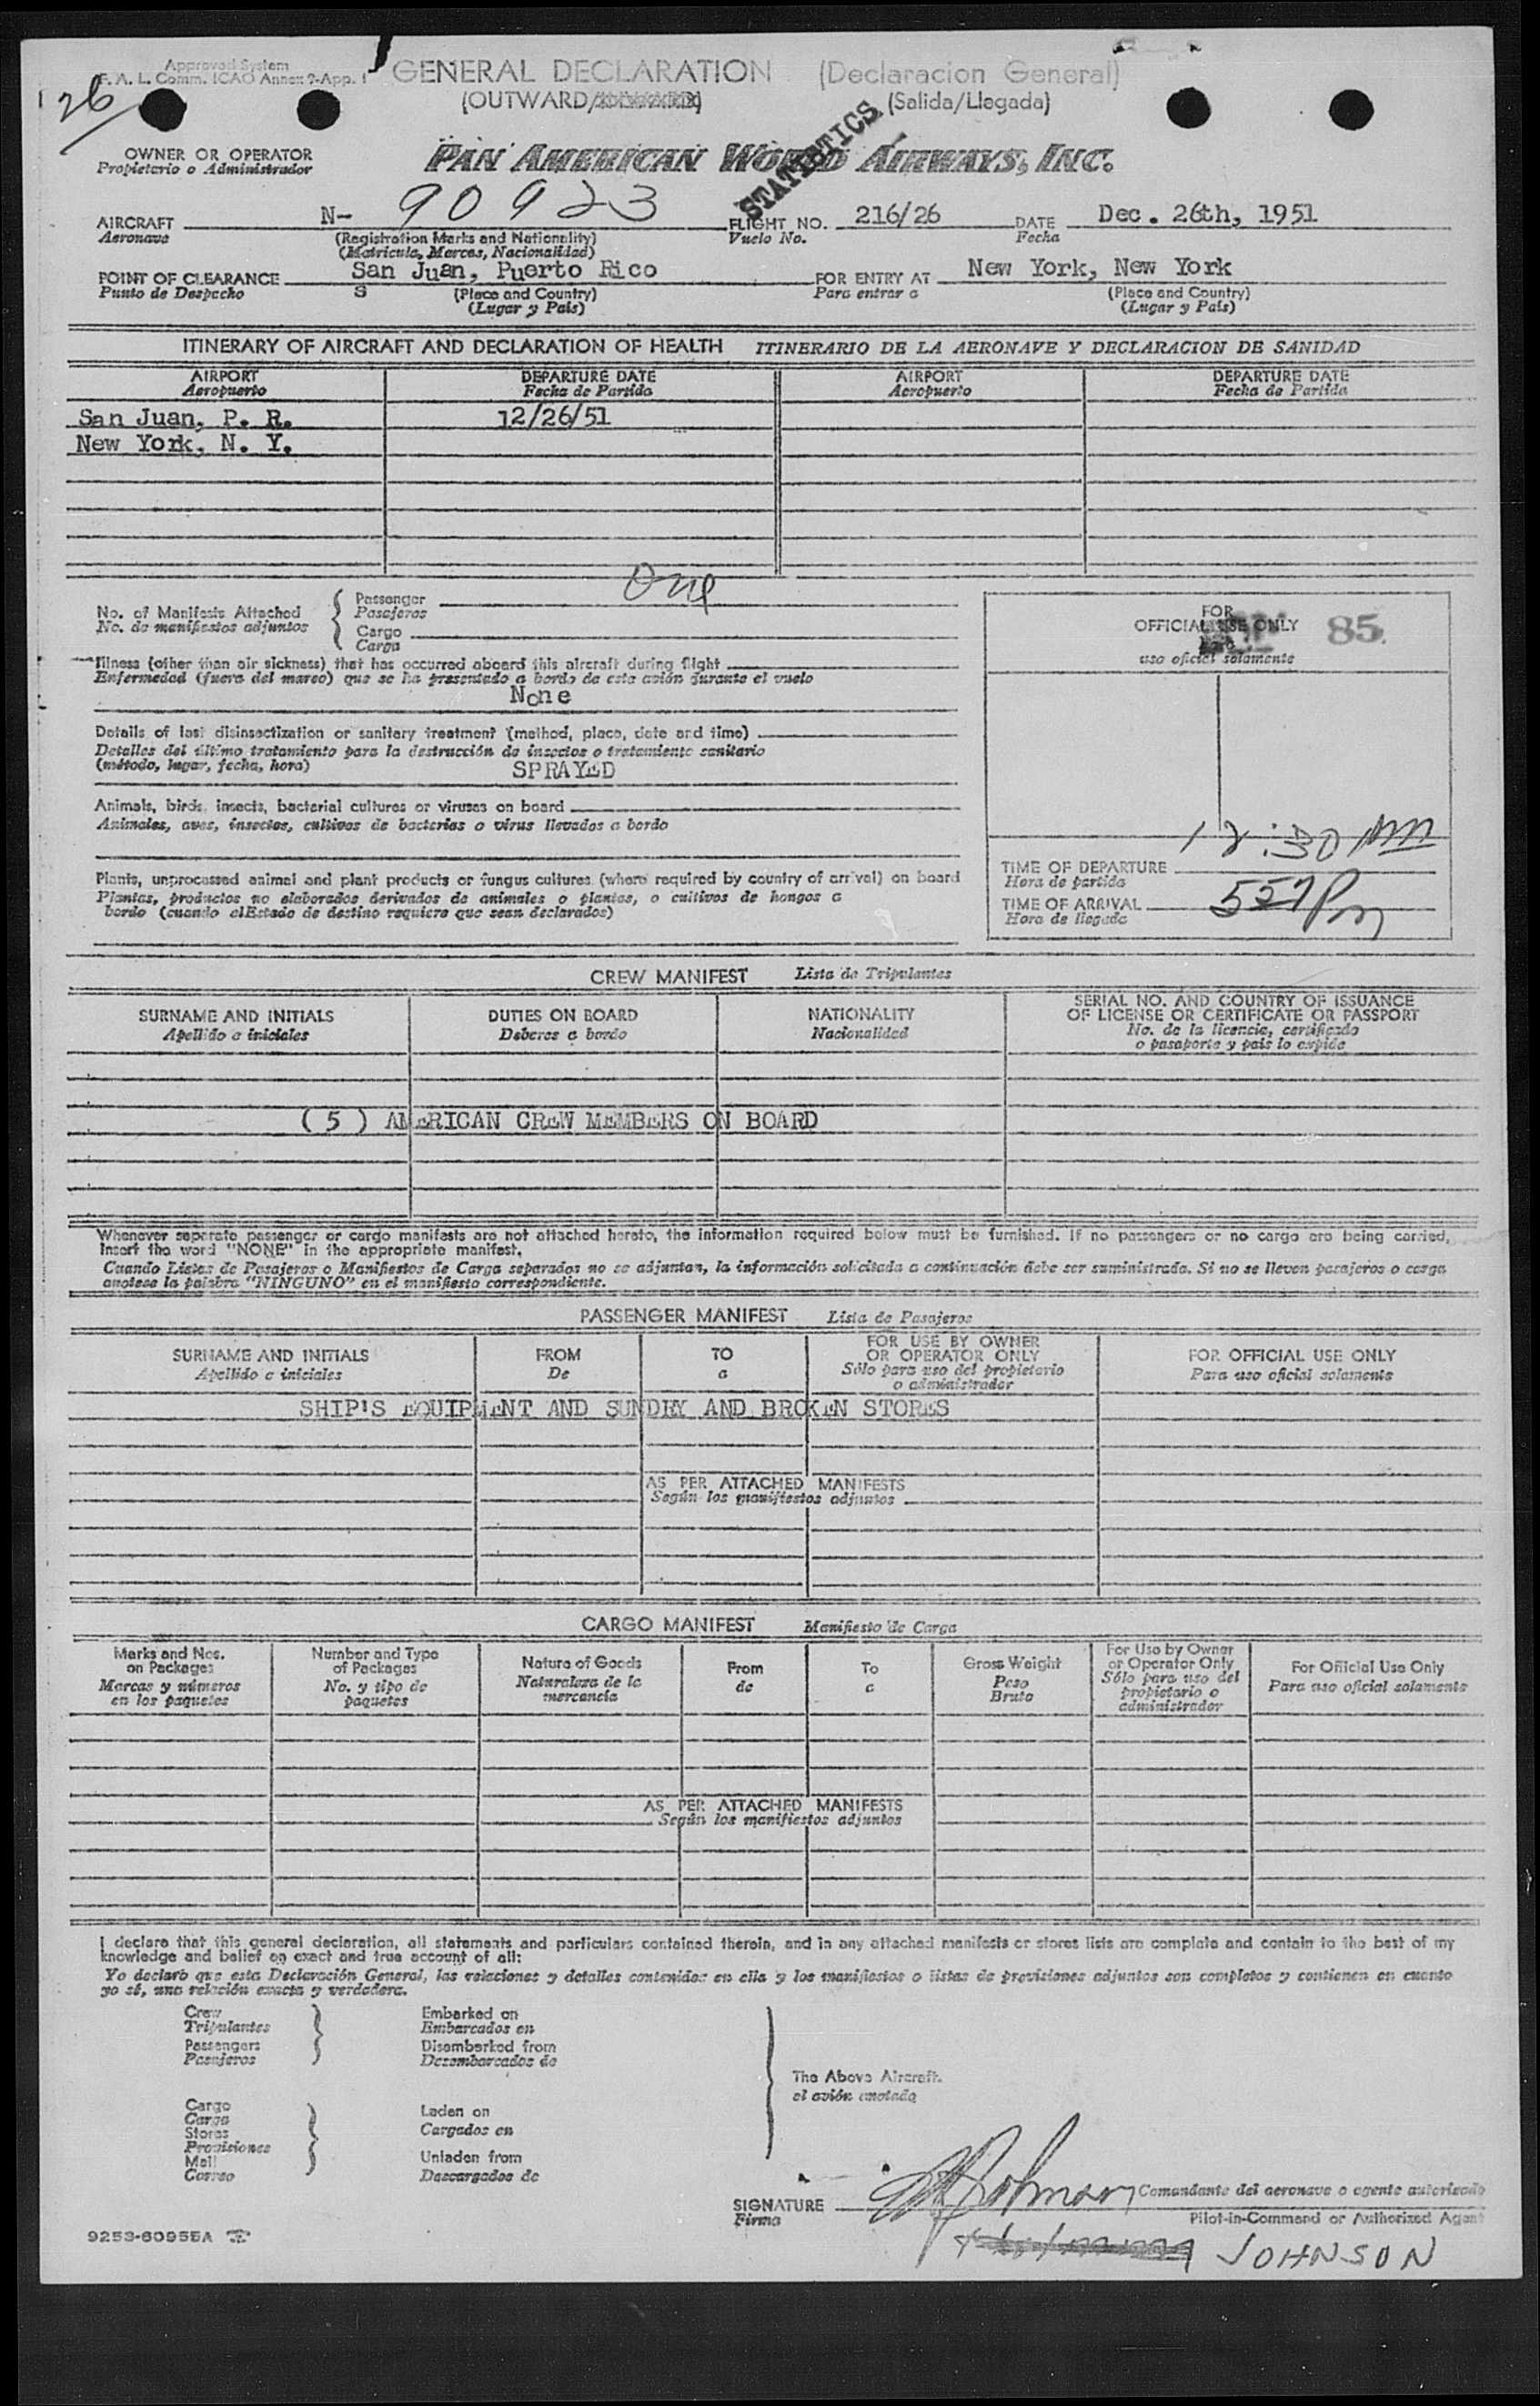 Approved System
F. A. L. Comm. ICAO Annex 9-App. 1
26
GENERAL DECLARATION (Declaracion General)
(OUTWARD/ (Salida/Llegada)
STATISTICS
OWNER OR OPERATOR
Propietario o Administrador
PAN AMERICAN WORLD AIRWAYS, INC.
AIRCRAFT N- 90923 FLIGHT NO. 216/26 DATE Dec. 26th, 1951
Aeronave (Registration Marks and Nationality) Vuelo No. Fecha
(Matricula, Marcas, Nacionalidad)
POINT OF CLEARANCE San Juan, Puerto Rico FOR ENTRY AT New York, New York
Punto de Despacho S (Place and Country) Para entrar a (Place and Country)
(Lugar y País) (Lugar y País)
ITINERARY OF AIRCRAFT AND DECLARATION OF HEALTH ITINERARIO DE LA AERONAVE Y DECLARACION DE SANIDAD
AIRPORT DEPARTURE DATE AIRPORT DEPARTURE DATE
Aeropuerto Fecha de Partida Aeropuerto Fecha de Partida
San Juan, P. R. 12/26/51
New York, N. Y.
No. of Manifests Attached Passenger One
No. de manifiestos adjuntos Pasajeros
Cargo
Carga
FOR
OFFICIAL USE ONLY 85
Para
uso oficial solamente
Illness (other than air sickness) that has occurred aboard this aircraft during flight
Enfermedad (fuera del mareo) que se ha presentado a bordo de este avión durante el vuelo
None
Details of last disinsectization or sanitary treatment (method, place, date and time)
Detalles del último tratamiento para la destrucción de insectos o tratamiento sanitario
(método, lugar, fecha, hora) SPRAYED
Animals, birds, insects, bacterial cultures or viruses on board
Animales, aves, insectos, cultivos de bacterias o virus llevados a bordo
Plants, unprocessed animal and plant products or fungus cultures (where required by country of arrival) on board
Plantas, productos no elaborados derivados de animales o plantas, o cultivos de hongos a
bordo (cuando elEstado de destino requiera que sean declarados)
TIME OF DEPARTURE 12:30 PM
Hora de partida
TIME OF ARRIVAL 557 Pm
Hora de llegada
CREW MANIFEST Lista de Tripulantes
SURNAME AND INITIALS DUTIES ON BOARD NATIONALITY SERIAL NO. AND COUNTRY OF ISSUANCE
OF LICENSE OR CERTIFICATE OR PASSPORT
Apellido e iniciales Deberes a bordo Nacionalidad No. de la licencia, certificado
o pasaporte y país lo expide
( 5 ) AMERICAN CREW MEMBERS ON BOARD
Whenever separate passenger or cargo manifests are not attached hereto, the information required below must be furnished. If no passengers or no cargo are being carried,
insert the word "NONE" in the appropriate manifest.
Cuando Listas de Pasajeros o Manifiestos de Carga separados no se adjuntan, la información solicitada a continuación debe ser suministrada. Si no se llevan pasajeros o carga
anotese la palabra "NINGUNO" en el manifiesto correspondiente.
PASSENGER MANIFEST Lista de Pasajeros
SURNAME AND INITIALS FROM TO FOR USE BY OWNER
OR OPERATOR ONLY FOR OFFICIAL USE ONLY
Apellido e iniciales De a Sólo para uso del propietario
o administrador Para uso oficial solamente
SHIP'S EQUIPMENT AND SUNDRY AND BROKEN STORES
AS PER ATTACHED MANIFESTS
Según los manifiestos adjuntos
CARGO MANIFEST Manifiesto de Carga
Marks and Nos.
on Packages
Marcas y números
en los paquetes
Number and Type
of Packages
No. y tipo de
paquetes
Nature of Goods
Naturaleza de la
mercancía
From
de
To
a
Gross Weight
Peso
Bruto
For Use by Owner
or Operator Only
Sólo para uso del
propietario o
administrador
For Official Use Only
Para uso oficial solamente
AS PER ATTACHED MANIFESTS
Según los manifiestos adjuntos
I declare that this general declaration, all statements and particulars contained therein, and in any attached manifests or stores lists are complete and contain to the best of my
knowledge and belief on exact and true account of all:
Yo declaro que esta Declaración General, las relaciones y detalles contenidos en ella y los manifiestos o listas de provisiones adjuntos son completos y contienen en cuanto
yo sé, una relación exacta y verdadera.
Crew Embarked on
Tripulantes Embarcados en
Passengers Disembarked from
Pasajeros Desembarcados de
The Above Aircraft.
el avión anotado
Cargo Laden on
Carga
Stores Cargados en
Provisiones
Mail Unladen from
Correo Descargados de
SIGNATURE Comandante del aeronave o agente autorizado
Firma Pilot-in-Command or Authorized Agent
JOHNSON
9253-60955A